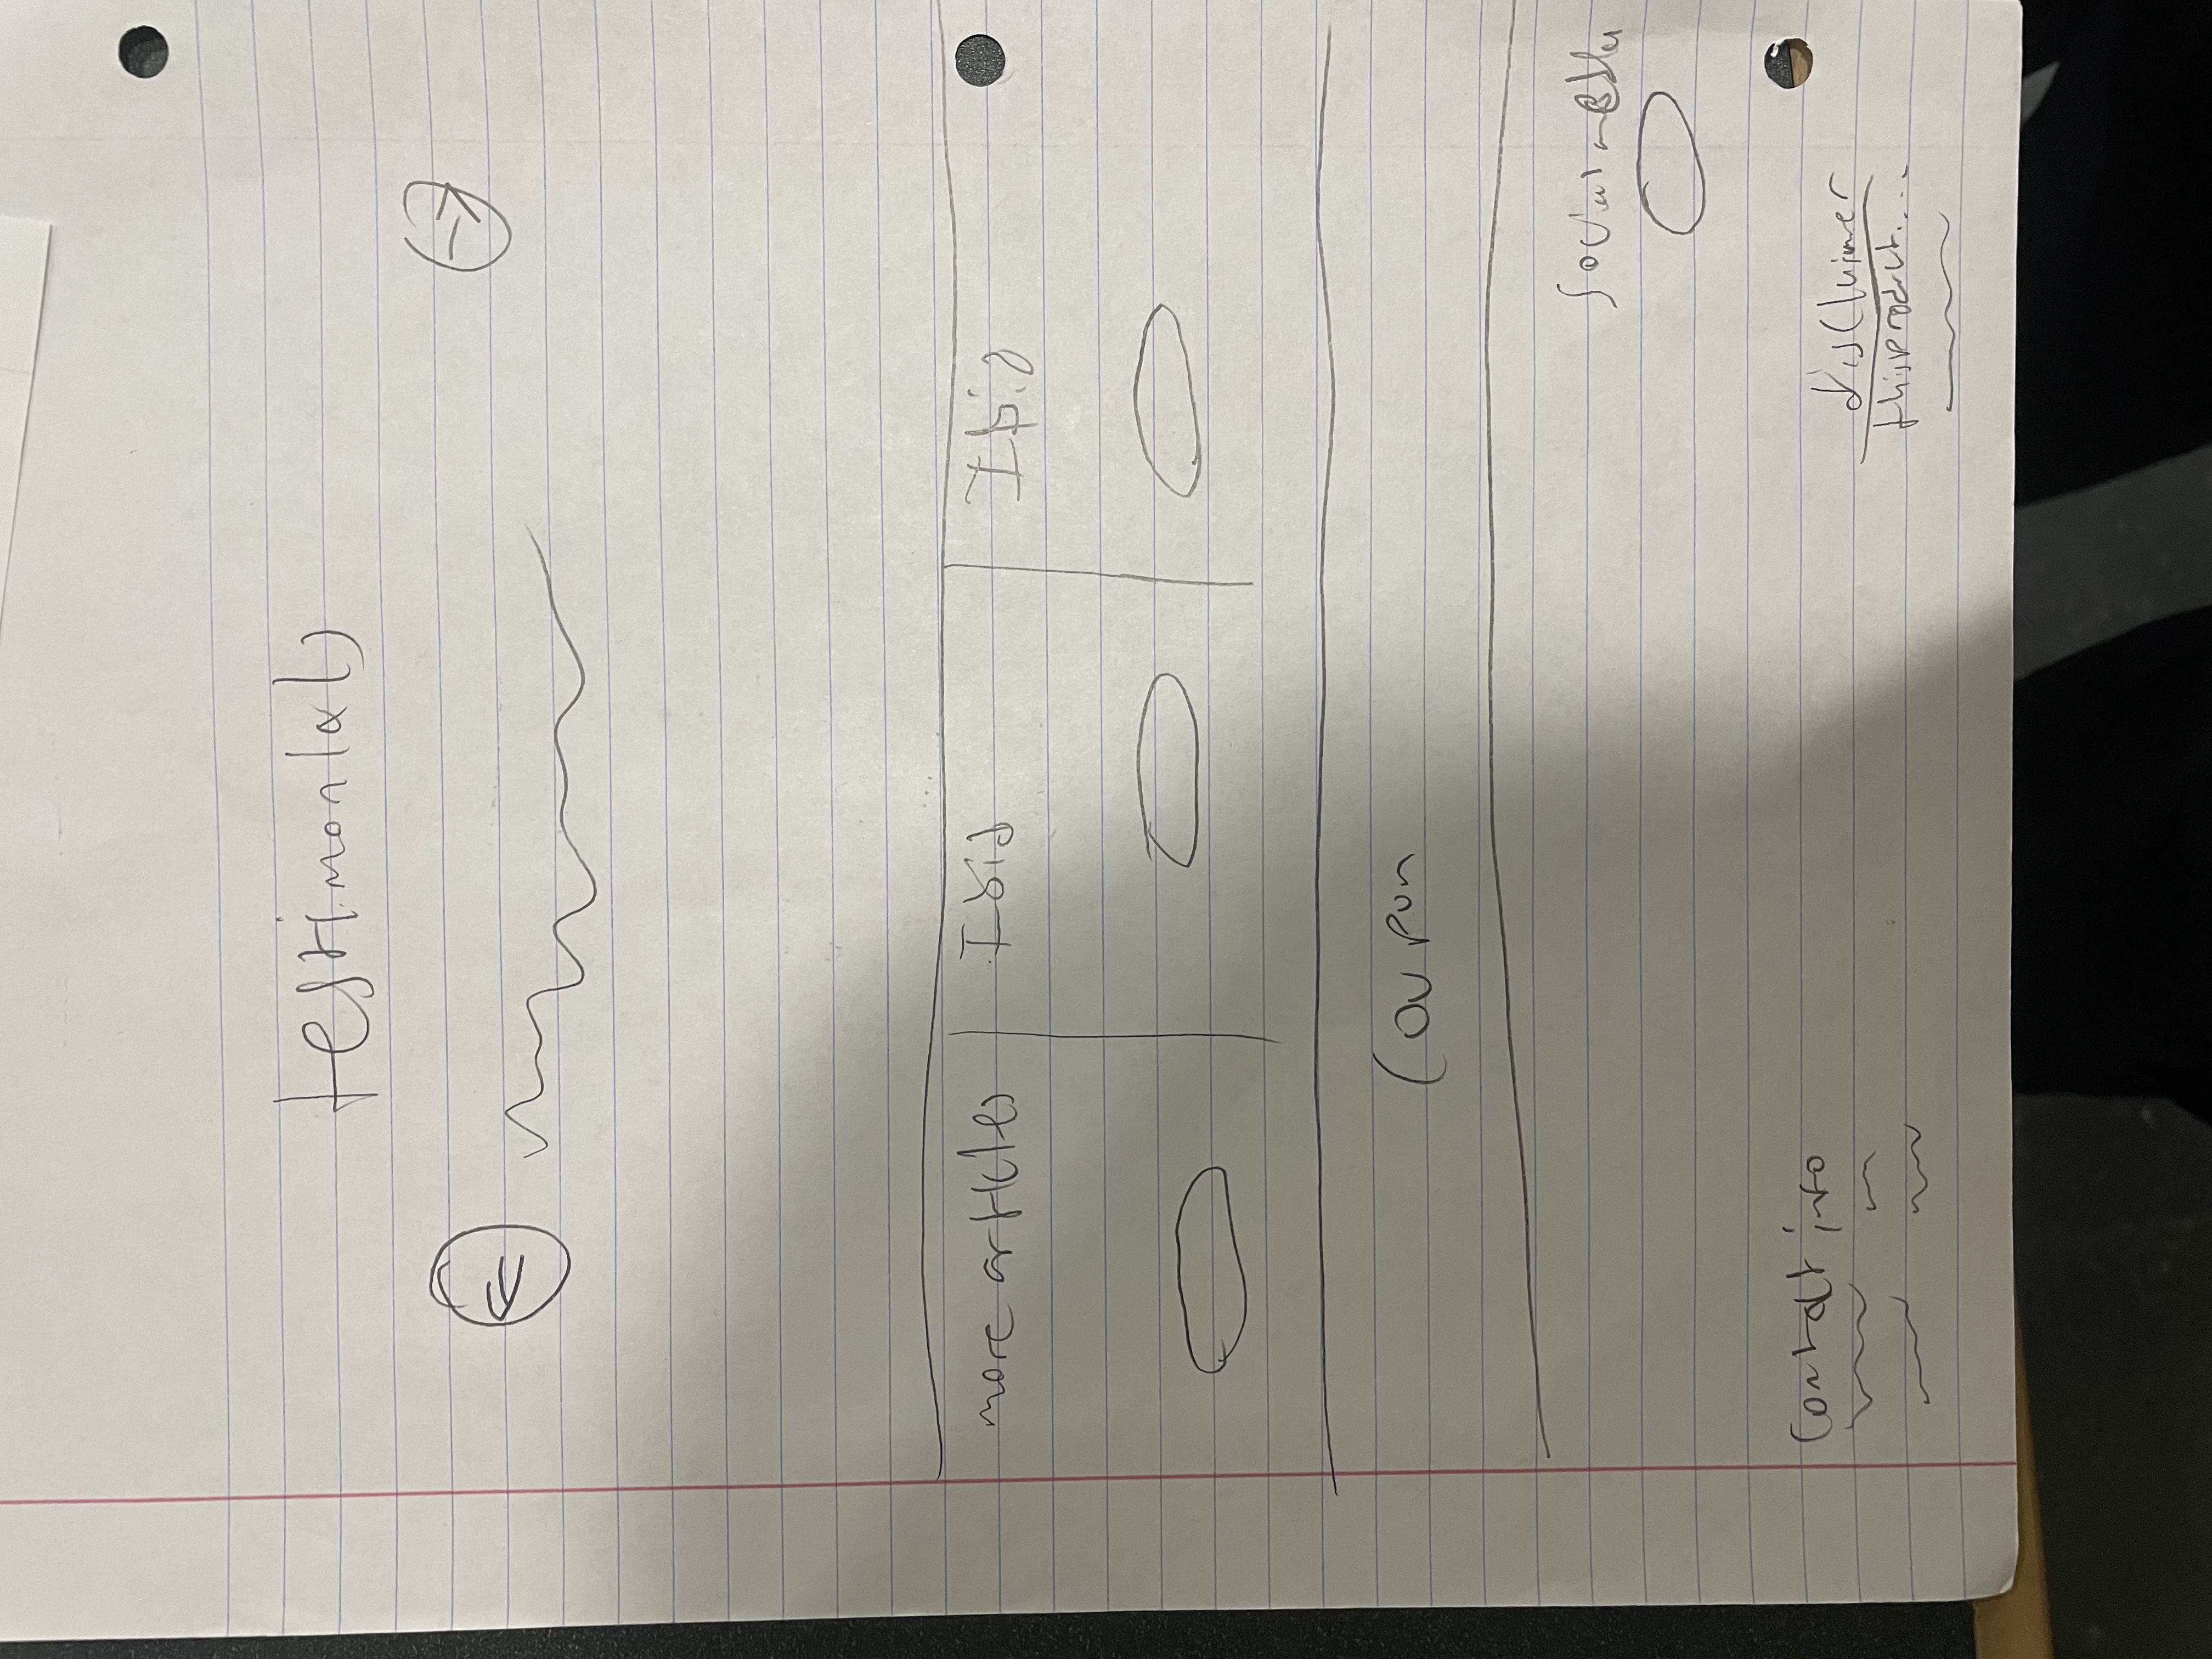 testimonials
more articles
Ibid
Ibid
Coupon
social media
contact info
disclaimer
this product....